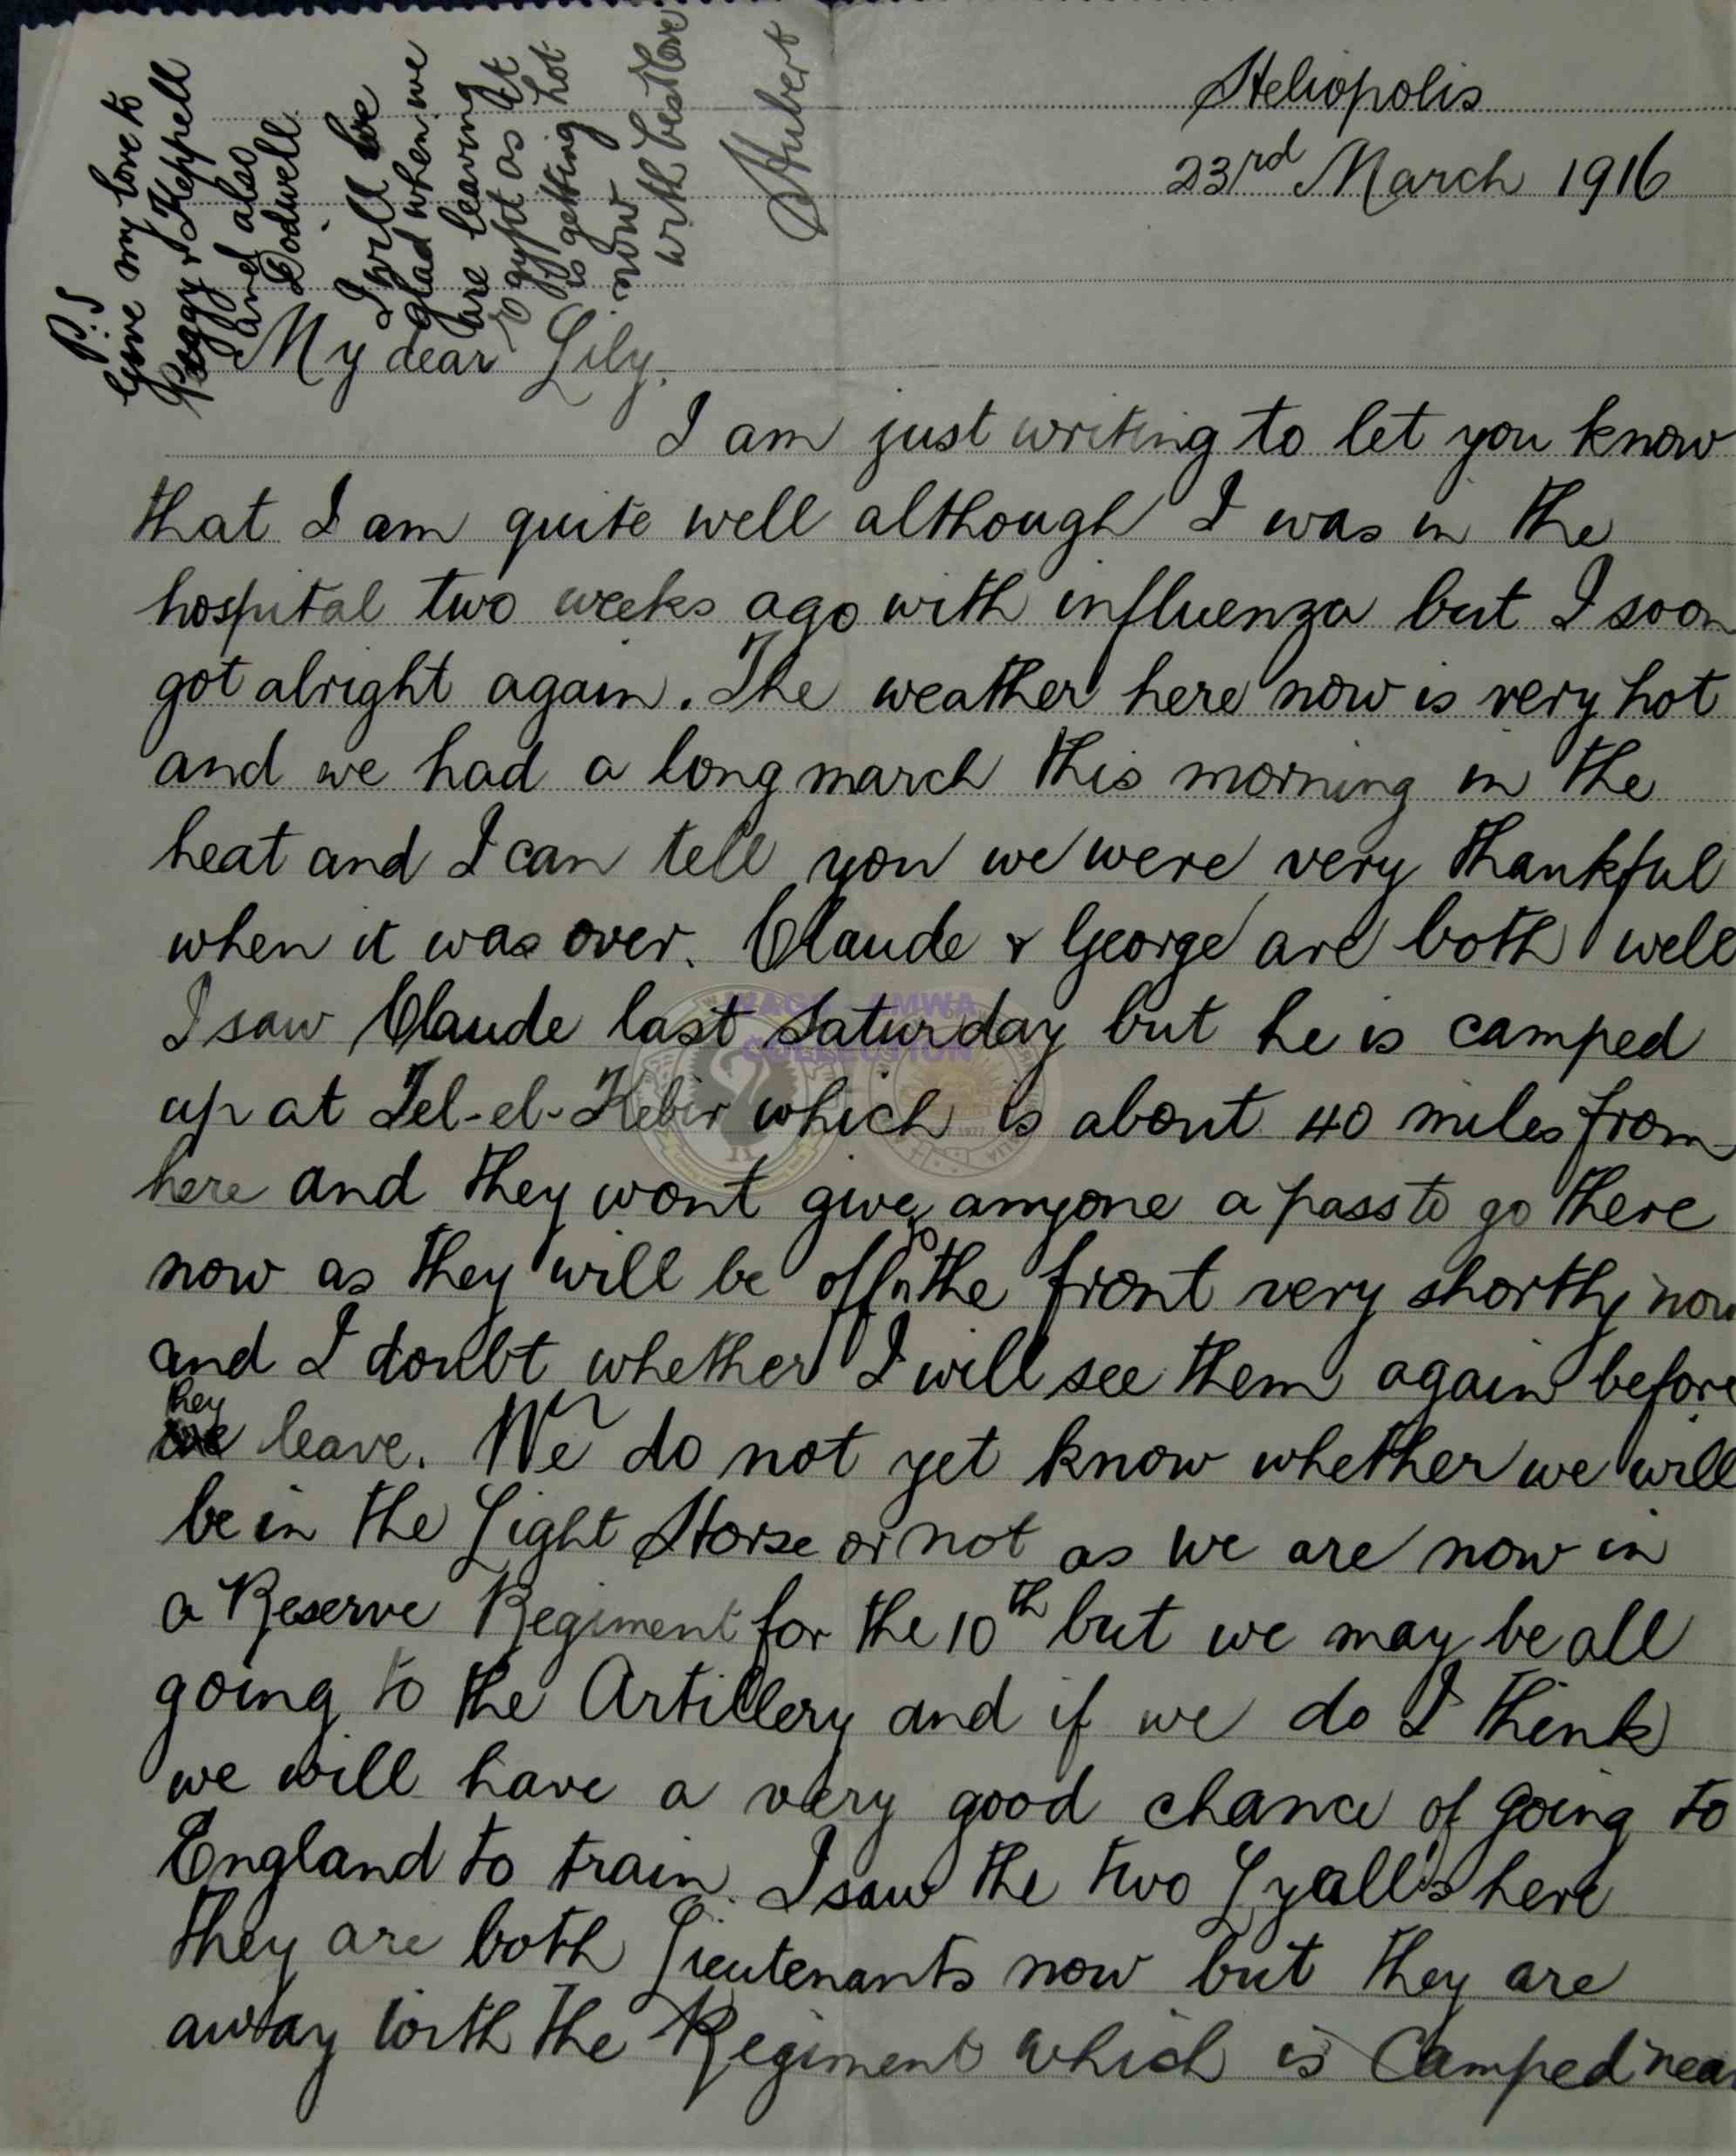 Heliopolis
23rd March 1916
My dear Lily.
I am just writing to let you know
that I am quite well although I was in the
hospital two weeks ago with influenza but I soon
got alright again. The weather here now is very hot
and we had a long march this morning in the
heat and I can tell you we were very thankful
when it was over. Claude & George are both well
I saw Claude last Saturday but he is camped
up at Tel-el-Kebir which is about 40 miles from
here and they wont give anyone a pass to go there
now as they will be off to the front very shortly now
and I doubt whether I will see them again before
they
we leave. We do not yet know whether we will
be in the Light Horse or not as we are now in
a Reserve Regiment for the 10th but we may be all
going to the Artillery and if we do I think
we will have a very good chance of going to
England to train. I saw the two Lyall's here
they are both Lieutenants now but they are
away with the Regiment which is Camped near
P.S
Give my love to
Peggy & Keppell
and also
Dodwell
I will be
glad when we
are leaving
Egypt as it
is getting hot
now
with best love
Hubert
WAGS - AMWA
COLLECTION